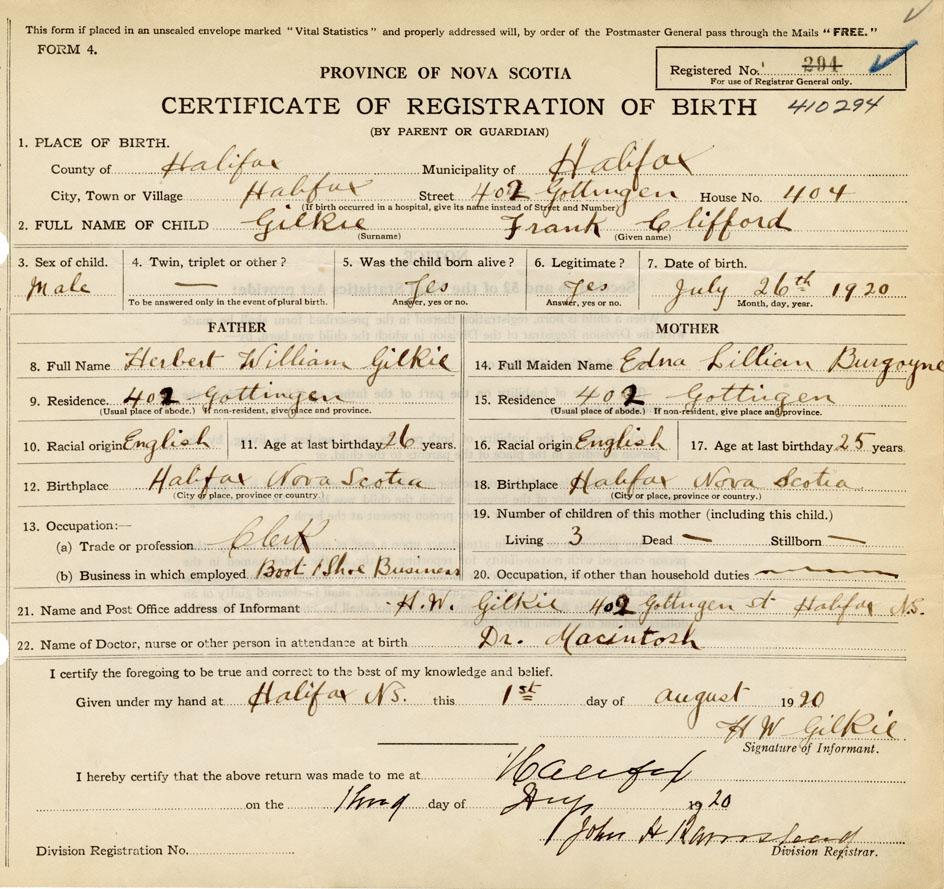 This form if placed in an unsealed envelope marked "Vital Statistics" and properly addressed will, by order of the Postmaster General pass through the Mails "FREE."
FORM 4.
Registered No. 294
For use of Registrar General only.
PROVINCE OF NOVA SCOTIA
CERTIFICATE OF REGISTRATION OF BIRTH 410294
(BY PARENT OR GUARDIAN)
1. PLACE OF BIRTH.
County of Halifax Municipality of Halifax
City, Town or Village Halifax Street 402 Gottingen House No. 404
(If birth occurred in a hospital, give its name instead of Street and Number)
2. FULL NAME OF CHILD Gilkie Frank Clifford
(Surname) (Given name)
3. Sex of child. 4. Twin, triplet or other? 5. Was the child born alive? 6. Legitimate? 7. Date of birth.
Male — Yes Yes July 26th 1920
To be answered only in the event of plural birth. Answer, yes or no. Answer, yes or no. Month, day, year.
FATHER MOTHER
8. Full Name Herbert William Gilkie 14. Full Maiden Name Edna Lillian Burgoyne
9. Residence. 402 Gottingen 15. Residence 402 Gottingen
(Usual place of abode.) If non-resident, give place and province. (Usual place of abode.) If non-resident, give place and province.
10. Racial origin English 11. Age at last birthday 26 years. 16. Racial origin English 17. Age at last birthday 25 years
12. Birthplace Halifax Nova Scotia 18. Birthplace Halifax Nova Scotia
(City or place, province or country.) (City or place, province or country.)
13. Occupation:— 19. Number of children of this mother (including this child.)
(a) Trade or profession Clerk Living 3 Dead — Stillborn —
(b) Business in which employed Boot & Shoe Business 20. Occupation, if other than household duties
21. Name and Post Office address of Informant H.W. Gilkie 402 Gottngen st Halifax N.S.
22. Name of Doctor, nurse or other person in attendance at birth Dr. Macintosh
I certify the foregoing to be true and correct to the best of my knowledge and belief.
Given under my hand at Halifax N.S. this 1st day of august 1920
H W Gilkie
Signature of Informant.
I hereby certify that the above return was made to me at Halifax
on the day of 1920
John H
Division Registration No. Division Registrar.